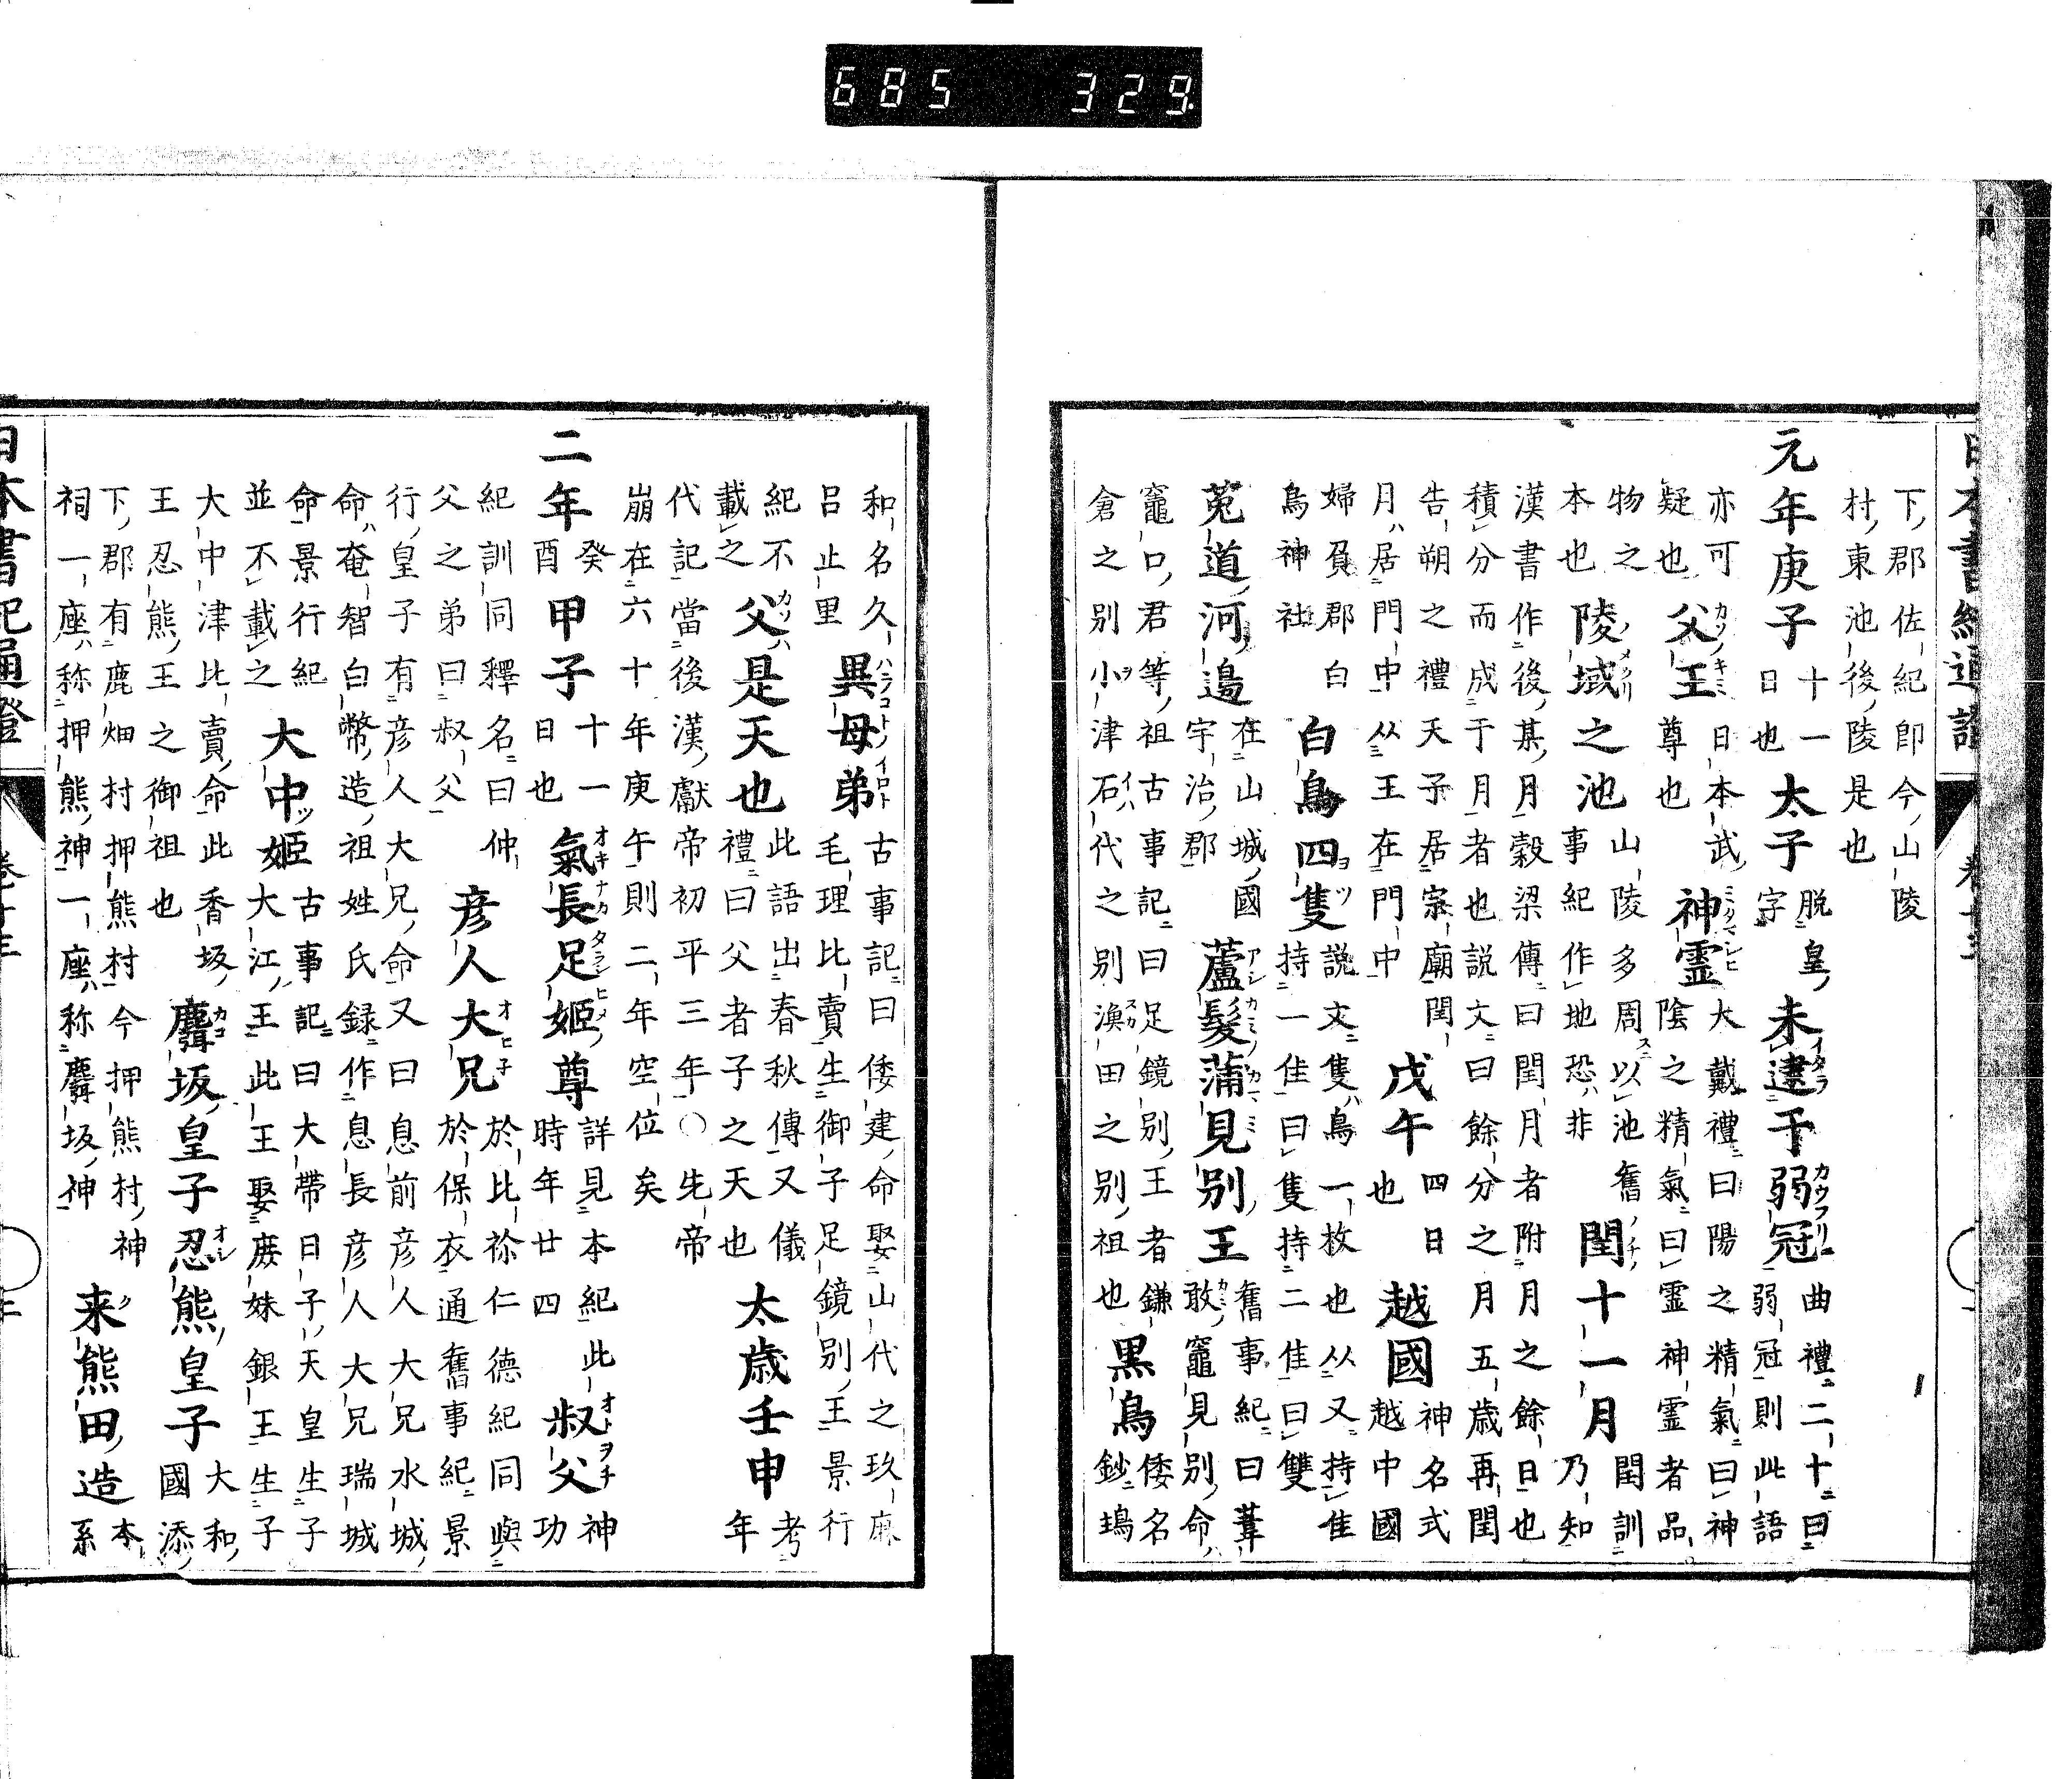 日本書紀通證
下郡佐紀卽今山陵
村東池後陵是也
元年庚子 十一日也 太子 脱皇字 未逮于弱冠 曲禮二十曰弱冠則此語
亦可疑也 父王 日本武尊也 神霊 大戴禮曰陽之精氣曰神陰之精氣曰霊神霊者品
物之本也 陵域之池 山陵多周以池舊事紀作地恐非 閏十一月 閏訓乃知
漢書作後某月穀梁傳曰閏月者附月之餘日也
積分而成于月者也説文曰餘分之月五歳再閏
告朔之禮天子居宗廟閏月居門中从王在門中 戊午 四日也 越國 神名式越中國
婦負郡白鳥神社 白鳥四隻 説文隻鳥一枚也从又持隹持一隹曰隻持二隹曰雙
菟道河邊 在山城國宇治郡 蘆髮蒲見別王 舊事紀曰葦敢竈見別命
竈口君等祖古事記曰足鏡別王者鎌倉之別小津石代之別漁田之別祖也 黒鳥 倭名鈔鴇
和名久呂止里 異母弟 古事記曰倭建命娶山代之玖麻毛理比賣生御子足鏡別王景行
紀不載之 父是天也 此語出春秋傳又儀禮曰父者子之天也 太歳壬申 考年
代記當後漢獻帝初平三年○先帝
崩在六十年庚午則二年空位矣
二年 癸酉 甲子 十一日也 氣長足姫尊 詳見本紀此時年廿四 叔父 神功
紀訓同釋名曰仲父之弟曰叔父 彦人大兄 於比祢仁德紀同與於保衣通舊事紀景
行皇子有彦人大兄命又曰息前彦人大兄水城
命奄智白幣造祖姓氏録作息長彦人大兄瑞城
命景行紀並不載之 大中姫 古事記曰大帶日子天皇生子大江王此王娶庶妹銀王生子
大中津比賣命此香坂王忍熊王之御祖也 麛坂皇子忍熊皇子 大和國添
下郡有鹿畑村押熊村今押熊村神祠一座称押熊神一座称麛坂神 来熊田造 本系
日本書紀通證
685 329